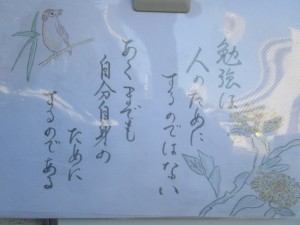 勉強は
人のために
するのではない
あくまでも
自分自身の
ために
するのである